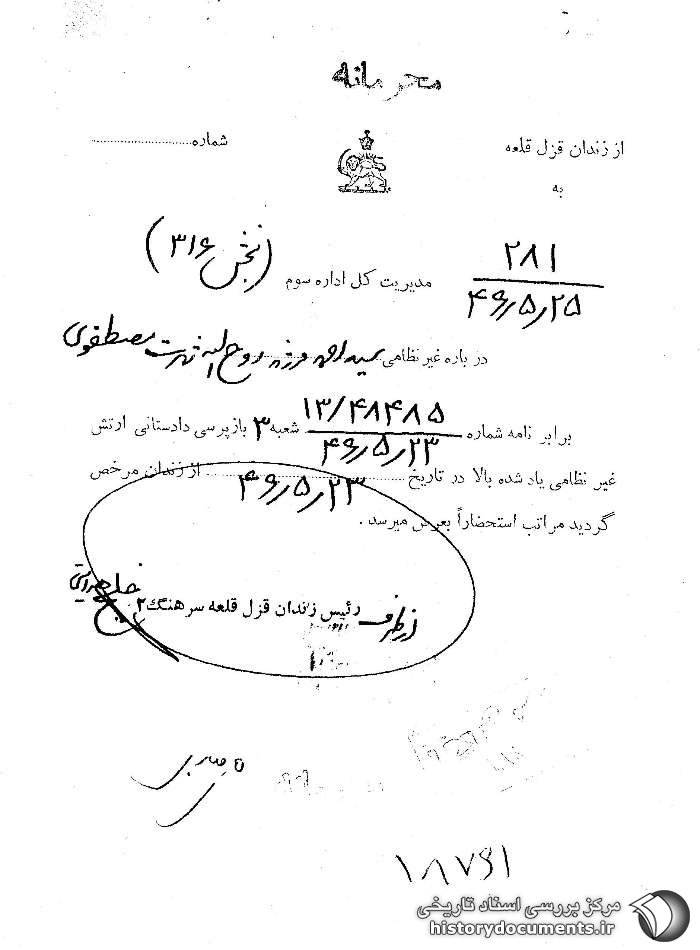 محرمانه
از زندان قزل قلعه
شماره
به
مدیریت کل اداره سوم (بخش ۳۱۶)
۲۸۱
۴۶/۵/۲۵
در باره غیر نظامی سید احمد فرزند روح اله شهرت مصطفوی
برابر نامه شماره ۱۳/۴۸۴۸۵ شعبه ۳ بازپرسی دادستانی ارتش
۴۶/۵/۲۳
غیر نظامی یاد شده بالا در تاریخ ۴۶/۵/۲۳ از زندان مرخص
گردید مراتب استحضاراً بعرض میرسد .
از طرف رئیس زندان قزل قلعه سرهنگ ۲
۱۸۷۶۱
مرکز بررسی اسناد تاریخی
historydocuments.ir